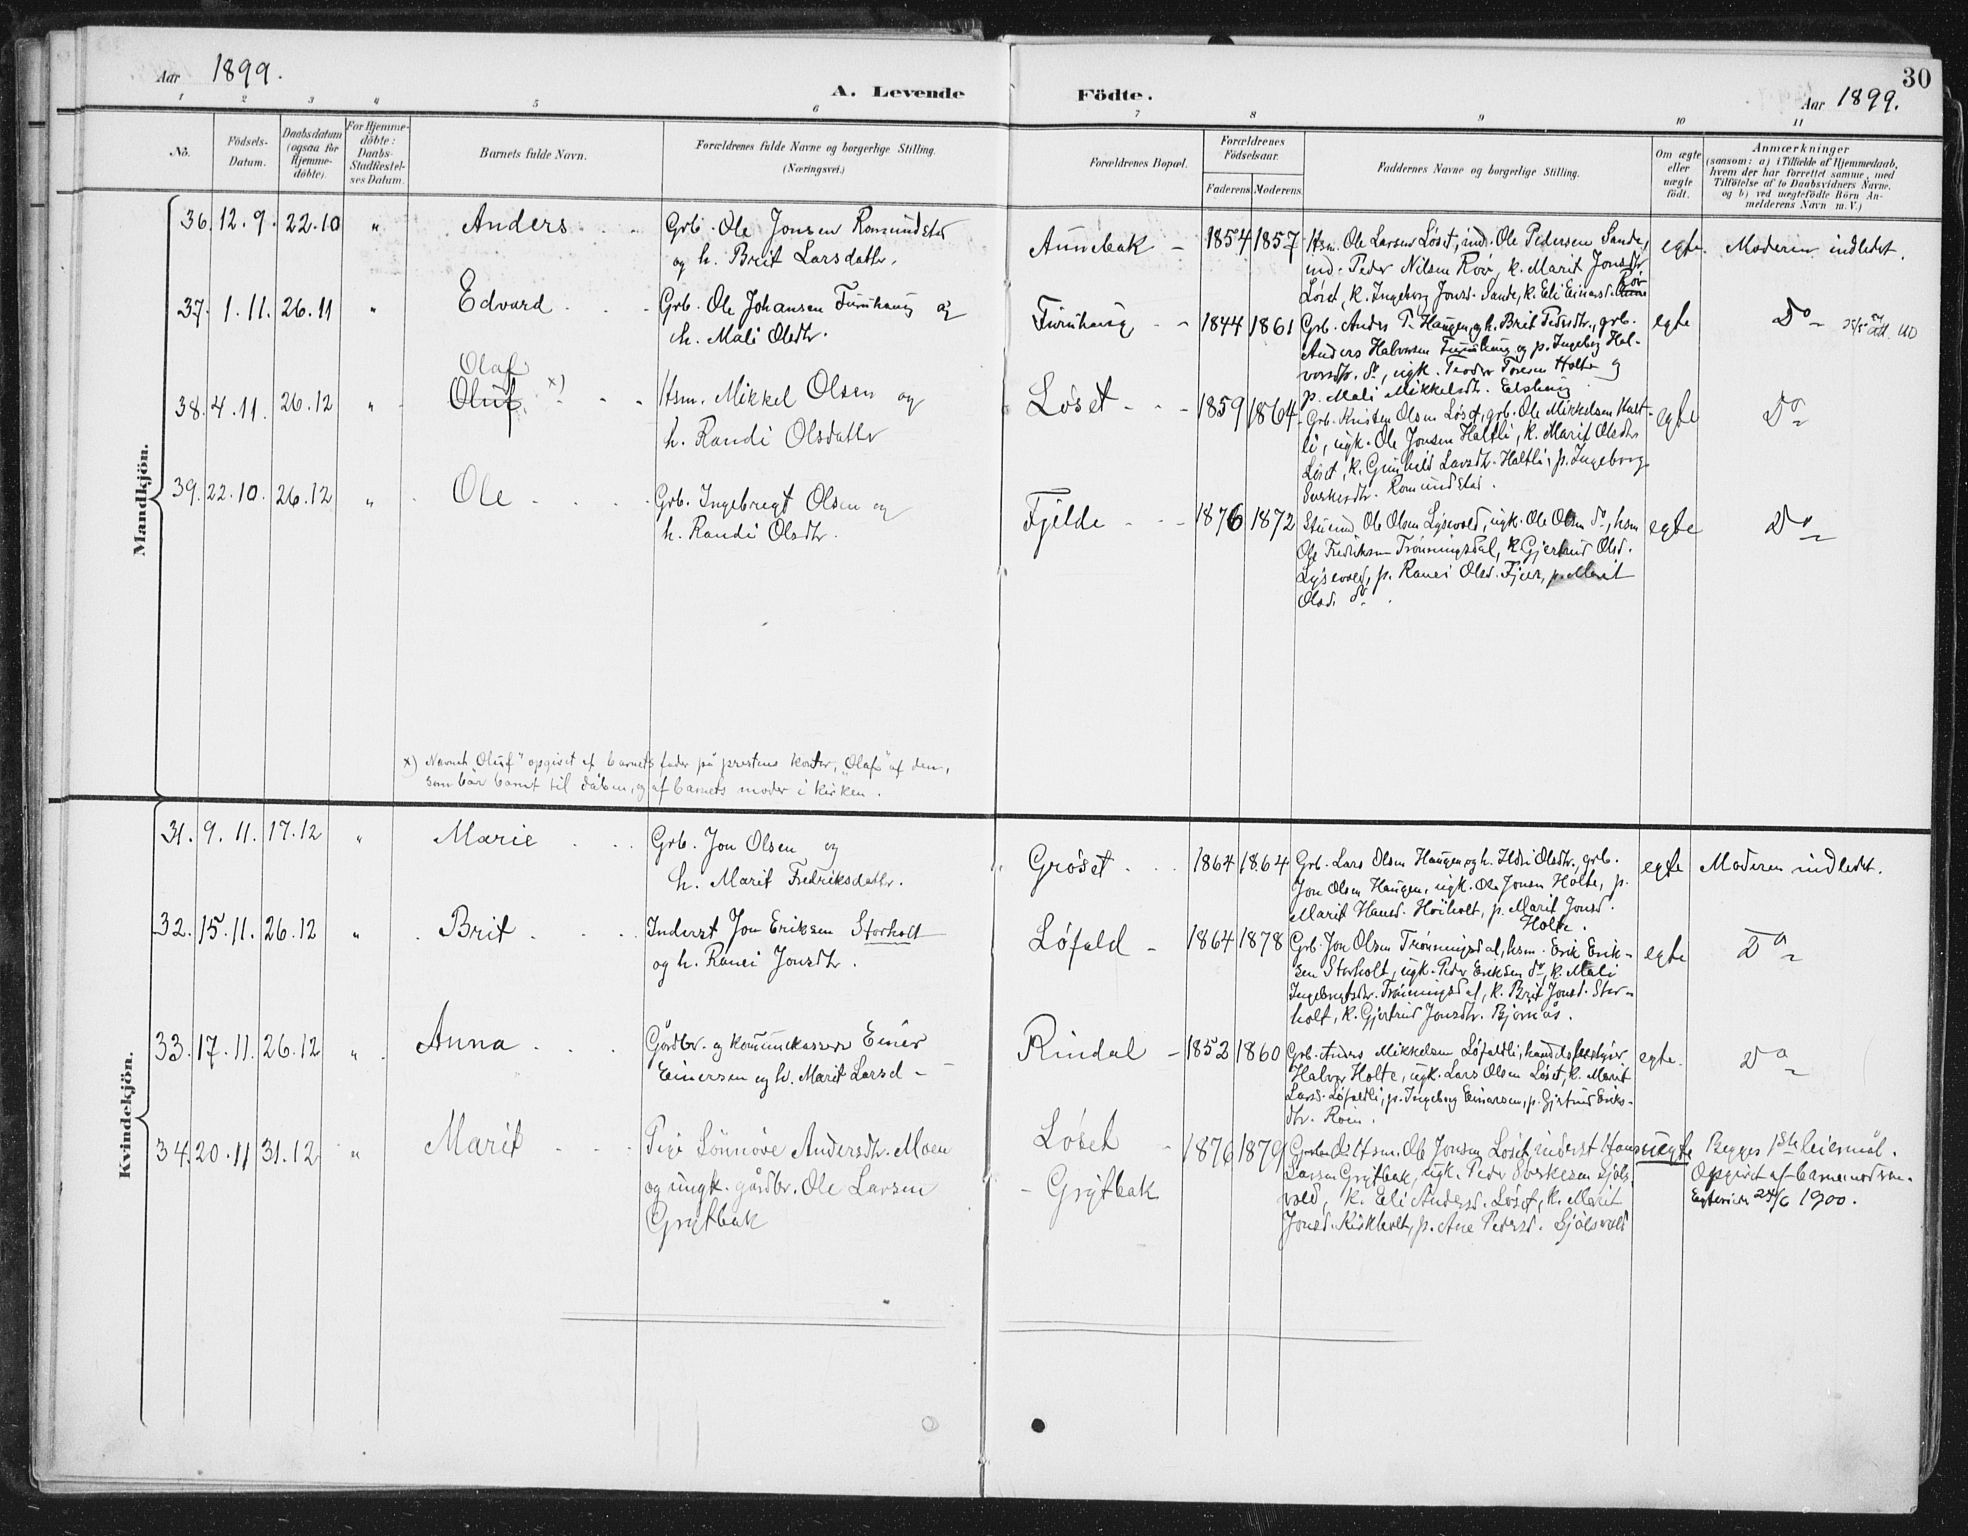 Aar 1899.
A. Levende Födte.
Aar 1899.
30
1 2 3 4 5 6 7 8 9 10 11
No.
Födsels-
Datum.
Daabsdatum
(ogsaa for
Hjemme-
döbte).
For Hjemme-
döbte:
Daabs-
Stadfæstel-
ses Datum.
Barnets fulde Navn.
Forældrenes fulde Navne og borgerlige Stilling.
(Næringsvei.)
Forældrenes Bopæl.
Forældrenes
Födselsaar.
Faderens. Moderens.
Faddernes Navne og borgerlige Stilling.
Om ægte
eller
uægte
födt.
Anmærkninger
(saasom: a) i Tilfælde af Hjemmedaab,
hvem der har forrettet samme, med
Tilföielse af to Daabsvidners Navne,
og b) ved uægtefödte Börn An-
melderens Navn m. V.)
Mandkjön.
36. 12.9. 22.10 " Anders
Grb. Ole Jonsen Romundstad
og h. Brit Larsdatter.
Aunebak 1854 1857
Hsm. Ole Larsen Løset, ind. Ole Pedersen Sande,
ind. Peder Nilsen Röv, k. Marit Jonsdtr
Löset, k. Ingeborg Jonsd. Sande, k. Eli Einarsd. Röv
egte. Moderen indledet.
37. 1.11. 26.11 " Edvard
Grb. Ole Johansen Furuhaug og
h. Mali Olsdtr.
Furuhaug 1844 1861
Grb. Anders P. Haugen og h. Brit Pedersdtr., grb.
Anders Halvorsen Furuhaug og p. Ingeborg Hal-
vorsdtr. do, ugk. Teodor Toresen Holte og
p. Mali Mikkelsdtr.
egte Do
38. 4.11. 26.12 " Olaf
Oluf x)
Hsm. Mikkel Olsen og
h. Randi Olsdatter
Löset 1859 1864
Grb. Kristen Olsen Løset, grb. Ole Mikkelsen Halt-
li, ugk. Ole Jonsen Haltli, k. Marit Olsdtr
Løset, k. Gunhild Larsdtr. Haltli, p. Ingeborg
Sverkesdtr. Romundstad.
egte Do
39. 22.10. 26.12 " Ole
Grb. Ingebregt Olsen og
h. Randi Olsdtr.
Fjelde 1876 1872
Ole Olsen Lysevold, ugk. Ole Olsen do, hsm
Ole Fredriksen Trønningsdal, k. Gjertrud Olsd.
Lysevold, p. Ranei Olsd. Fjelde, p. Marit
Olsd. do.
egte Do
x) Navnet "Oluf" opgivet af barnets fader på prestens kontor, "Olaf" af den,
som bar barnet til dåben, og af barnets moder i kirken.
Kvindekjön.
31. 9.11. 17.12 " Marie
Grb. Jon Olsen og
h. Marit Fredriksdatter.
Gröset 1864 1864
Grb. Lars Olsen Haugen og h. Olsdtr., grb.
Jon Olsen Haugen, ugk. Ole Jonsen Holte, p.
Marit Hansd. Höiholt, p. Marit Jonsd.
Holte.
egte Moderen indledet.
32. 15.11. 26.12 " Brit
Inderst Jon Eriksen Storholt
og h. Ranei Jonsdtr.
Löfald 1864 1878
Grb. Jon Olsen Trønningsdal, hsm. Erik Erik-
sen Storholt, ugk. Peder Eriksen do, k. Mali
Ingebregtsdtr. Trønningsdal, k. Brit Jonsd. Stor-
holt, k. Gjertrud Jonsdtr. Bjørnås.
egte Do
33. 17.11. 26.12 " Anna
Gårdbr. og kommunekasserer Einar
Einersen og h. Marit Larsd
Rindal 1852 1860
Grb. Anders Mikkelsen Løfaldli, handelsbestyrer
Halvor Holte, ugk. Lars Olsen Løset, k. Marit
Larsd. Løfaldli, p. Ingeborg Einarsen, p. Gjertrud Eriks-
dtr. Röen.
egte. Do
34. 20.11 31.12 " Marit
Pige Sönnöve Andersdtr. Moen
og ungk. gårdbr. Ole Larsen
Grytbak
Löset
- Grytbak
1876 1879
Hsm. Ole Jonsen Løset, inderst Hans
Larsen Grytbak, ugk. Peder Sverkesen Sjøls-
vold, k. Eli Andersd. Løset, k. Marit
Jonsd. Kirkholt, p. Ane Pedersd. Sjölsvold
uegte
Begges 1ste leiermål.
Opgivet af barnemoderen.
24/6 1900.